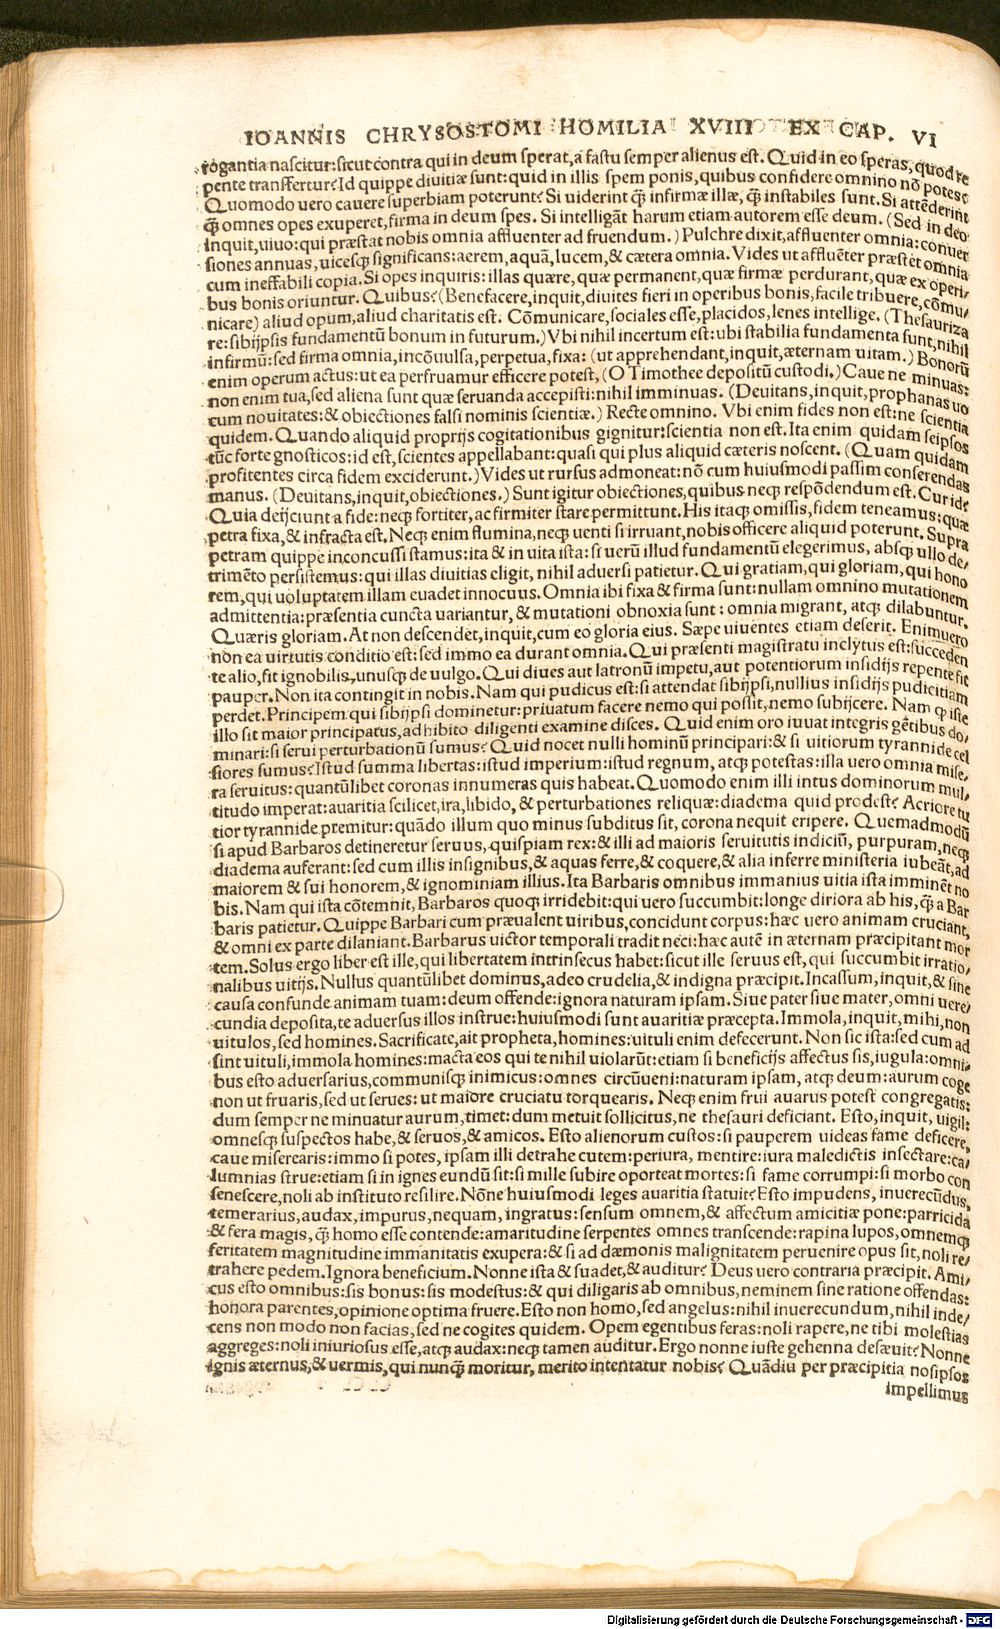 IOANNIS CHRYSOSTOMI HOMILIA XVIII EX CAP. VI
rogantia nascitur: sicut contra qui in deum sperat, a fastu semper alienus est. Quid in eo speras, quod re
pente transfertur? Id quippe diuitiæ sunt: quid in illis spem ponis, quibus confidere omnino nõ potes?
Quomodo uero cauere superbiam poterunt? Si uiderint q̃ infirmæ illæ, q̃ instabiles sunt. Si attẽderint
q̃ omnes opes exuperet, firma in deum spes. Si intelligãt harum etiam autorem esse deum. (Sed in deo
inquit, uiuo: qui præstat nobis omnia affluenter ad fruendum.) Pulchre dixit, affluenter omnia: conuer
siones annuas, uicesq; significans: aerem, aquã, lucem, & cætera omnia. Vides ut affluẽter præstet omnia
cum ineffabili copia. Si opes inquiris: illas quære, quæ permanent, quæ firmæ perdurant, quæ ex operi/
bus bonis oriuntur. Quibus? (Benefacere, inquit, diuites fieri in operibus bonis, facile tribuere, cõmu/
nicare) aliud opum, aliud charitatis est. Cõmunicare, sociales esse, placidos, lenes intellige. (Thesauriza
re: sibijpsis fundamentũ bonum in futurum.) Vbi nihil incertum est: ubi stabilia fundamenta sunt, nihil
infirmũ: sed firma omnia, incõuulsa, perpetua, fixa: (ut apprehendant, inquit, æternam uitam.) Bonorũ
enim operum actus: ut ea perfruamur efficere potest, (O Timothee depositũ custodi.) Caue ne minuas:
non enim tua, sed aliena sunt quæ seruanda accepisti: nihil imminuas. (Deuitans, inquit, prophanas uo
cum nouitates: & obiectiones falsi nominis scientiæ.) Recte omnino. Vbi enim fides non est: ne scientia
quidem. Quando aliquid proprijs cogitationibus gignitur: scientia non est. Ita enim quidam seipsos
tũc forte gnosticos: id est, scientes appellabant: quasi qui plus aliquid cæteris noscent. (Quam quidam
profitentes circa fidem exciderunt.) Vides ut rursus admoneat: nõ cum huiusmodi passim conserendas
manus. (Deuitans, inquit, obiectiones.) Sunt igitur obiectiones, quibus neq; respõdendum est. Cur ide
Quia deijciunt a fide: neq; fortiter, ac firmiter stare permittunt. His itaq; omissis, fidem teneamus: quæ
petra fixa, & infracta est. Neq; enim flumina, neq; uenti si irruant, nobis officere aliquid poterunt. Supra
petram quippe inconcussi stamus: ita & in uita ista: si uerũ illud fundamentũ elegerimus, absq; ullo de/
trimẽto persistemus: qui illas diuitias eligit, nihil aduersi patietur. Qui gratiam, qui gloriam, qui hono
rem, qui uoluptatem illam euadet innocuus. Omnia ibi fixa & firma sunt: nullam omnino mutationem
admittentia: præsentia cuncta uariantur, & mutationi obnoxia sunt: omnia migrant, atq; dilabuntur.
Quæris gloriam. At non descendet, inquit, cum eo gloria eius. Sæpe uiuentes etiam deserit. Enimuero
non ea uirtutis conditio est: sed immo ea durant omnia. Qui præsenti magistratu inclytus est: succeden
te alio, fit ignobilis, unusq; de uulgo. Qui diues aut latronũ impetu, aut potentiorum insidijs repente fit
pauper. Non ita contingit in nobis. Nam qui pudicus est: si attendat sibijpsi, nullius insidijs pudicitiam
perdet. Principem qui sibijpsi dominetur: priuatum facere nemo qui possit, nemo subijcere. Nam q̃ iste
illo sit maior principatus, adhibito diligenti examine disces. Quid enim oro iuuat integris gẽtibus do/
minari: si serui perturbationũ sumus? Quid nocet nulli hominũ principari: & si uitiorum tyrannide cel
siores sumus? Istud summa libertas: istud imperium: istud regnum, atq; potestas: illa uero omnia mise/
ra seruitus: quantũlibet coronas innumeras quis habeat. Quomodo enim illi intus dominorum mul/
titudo imperat: auaritia scilicet, ira, libido, & perturbationes reliquæ: diadema quid prodest? Acriore tu
tior tyrannide premitur: quãdo illum quo minus subditus sit, corona nequit eripere. Quemadmodũ
si apud Barbaros detineretur seruus, quispiam rex: & illi ad maioris seruitutis indiciũ, purpuram, neq;
diadema auferant: sed cum illis insignibus, & aquas ferre, & coquere, & alia inferre ministeria iubeãt, ad
maiorem & sui honorem, & ignominiam illius. Ita Barbaris omnibus immanius uitia ista imminẽt no
bis. Nam qui ista cõtemnit, Barbaros quoq; irridebit: qui uero succumbit: longe diriora ab his, q̃ a Bar
baris patietur. Quippe Barbari cum præualent uiribus, concidunt corpus: hæc uero animam cruciant,
& omni ex parte dilaniant. Barbarus uictor temporali tradit neci: hæc autẽ in æternam præcipitant mor
tem. Solus ergo liber est ille, qui libertatem intrinsecus habet: sicut ille seruus est, qui succumbit irratio/
nalibus uitijs. Nullus quantũlibet dominus, adeo crudelia, & indigna præcipit. Incassum, inquit, & sine
causa confunde animam tuam: deum offende: ignora naturam ipsam. Siue pater siue mater, omni uere/
cundia deposita, te aduersus illos instrue: huiusmodi sunt auaritiæ præcepta. Immola, inquit, mihi, non
uitulos, sed homines. Sacrificate, ait propheta, homines: uituli enim defecerunt. Non sic ista: sed cum ad
sint uituli, immola homines: macta eos qui te nihil uiolarũt: etiam si beneficijs affectus sis, iugula: omni/
bus esto aduersarius, communisq; inimicus: omnes circũueni: naturam ipsam, atq; deum: aurum coge
non ut fruaris, sed ut serues: ut maiore cruciatu torquearis. Neq; enim frui auarus potest congregatis:
dum semper ne minuatur aurum, timet: dum metuit sollicitus, ne thesauri deficiant. Esto, inquit, uigil:
omnesq; suspectos habe, & seruos, & amicos. Esto alienorum custos: si pauperem uideas fame deficere,
caue miserearis: immo si potes, ipsam illi detrahe cutem: periura, mentire: iura maledictis insectare: ca/
lumnias strue: etiam si in ignes eundũ sit: si mille subire oporteat mortes: si fame corrumpi: si morbo con
senescere, noli ab instituto resilire. Nõne huiusmodi leges auaritia statuit? Esto impudens, inuerecũdus,
temerarius, audax, impurus, nequam, ingratus: sensum omnem, & affectum amicitiæ pone: parricida
& fera magis, q̃ homo esse contende: amaritudine serpentes omnes transcende: rapina lupos, omnemq;
feritatem magnitudine immanitatis exupera: & si ad dæmonis malignitatem peruenire opus sit, noli re/
trahere pedem. Ignora beneficium. Nonne ista & suadet, & auditur? Deus uero contraria præcipit. Ami/
cus esto omnibus: sis bonus: sis modestus: & qui diligaris ab omnibus, neminem sine ratione offendas:
honora parentes, opinione optima fruere. Esto non homo, sed angelus: nihil inuerecundum, nihil inde/
cens non modo non facias, sed ne cogites quidem. Opem egentibus feras: noli rapere, ne tibi molestias
aggreges: noli iniuriosus esse, atq; audax: neq; tamen auditur. Ergo nonne iuste gehenna desæuit? Nonne
ignis æternus, & uermis, qui nunq̃ moritur, merito intentatur nobis? Quãdiu per præcipitia nosipsos
impellimus
Digitalisierung gefördert durch die Deutsche Forschungsgemeinschaft - DFG